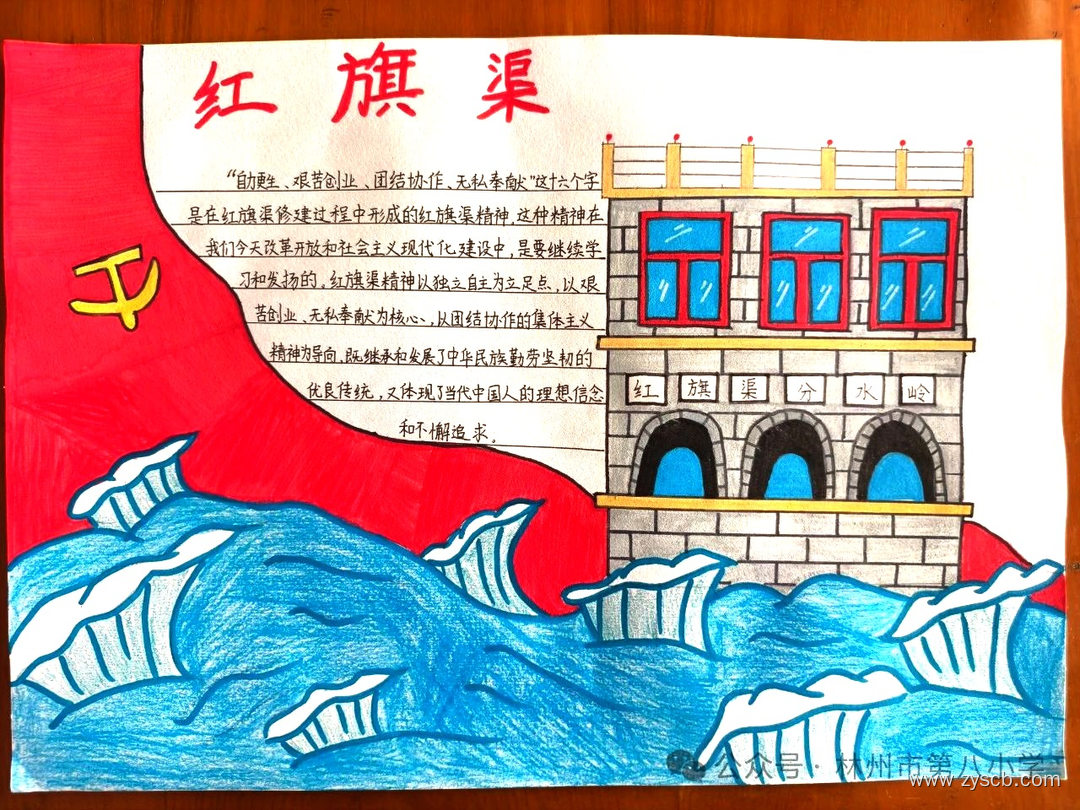 红旗渠
“自力更生、艰苦创业、团结协作、无私奉献”这十六个字
是在红旗渠修建过程中形成的红旗渠精神,这种精神在
我们今天改革开放和社会主义现代化建设中,是要继续学
习和发扬的。红旗渠精神以独立自主为立足点,以艰
苦创业、无私奉献为核心、,从团结协作的集体主义
精神为导向,既继承和发展了中华民族勤劳坚韧的
优良传统,又体现了当代中国人的理想信念
和不懈追求。
红旗渠分水岭
公众号·林州市第八小学
www.zyscb.com